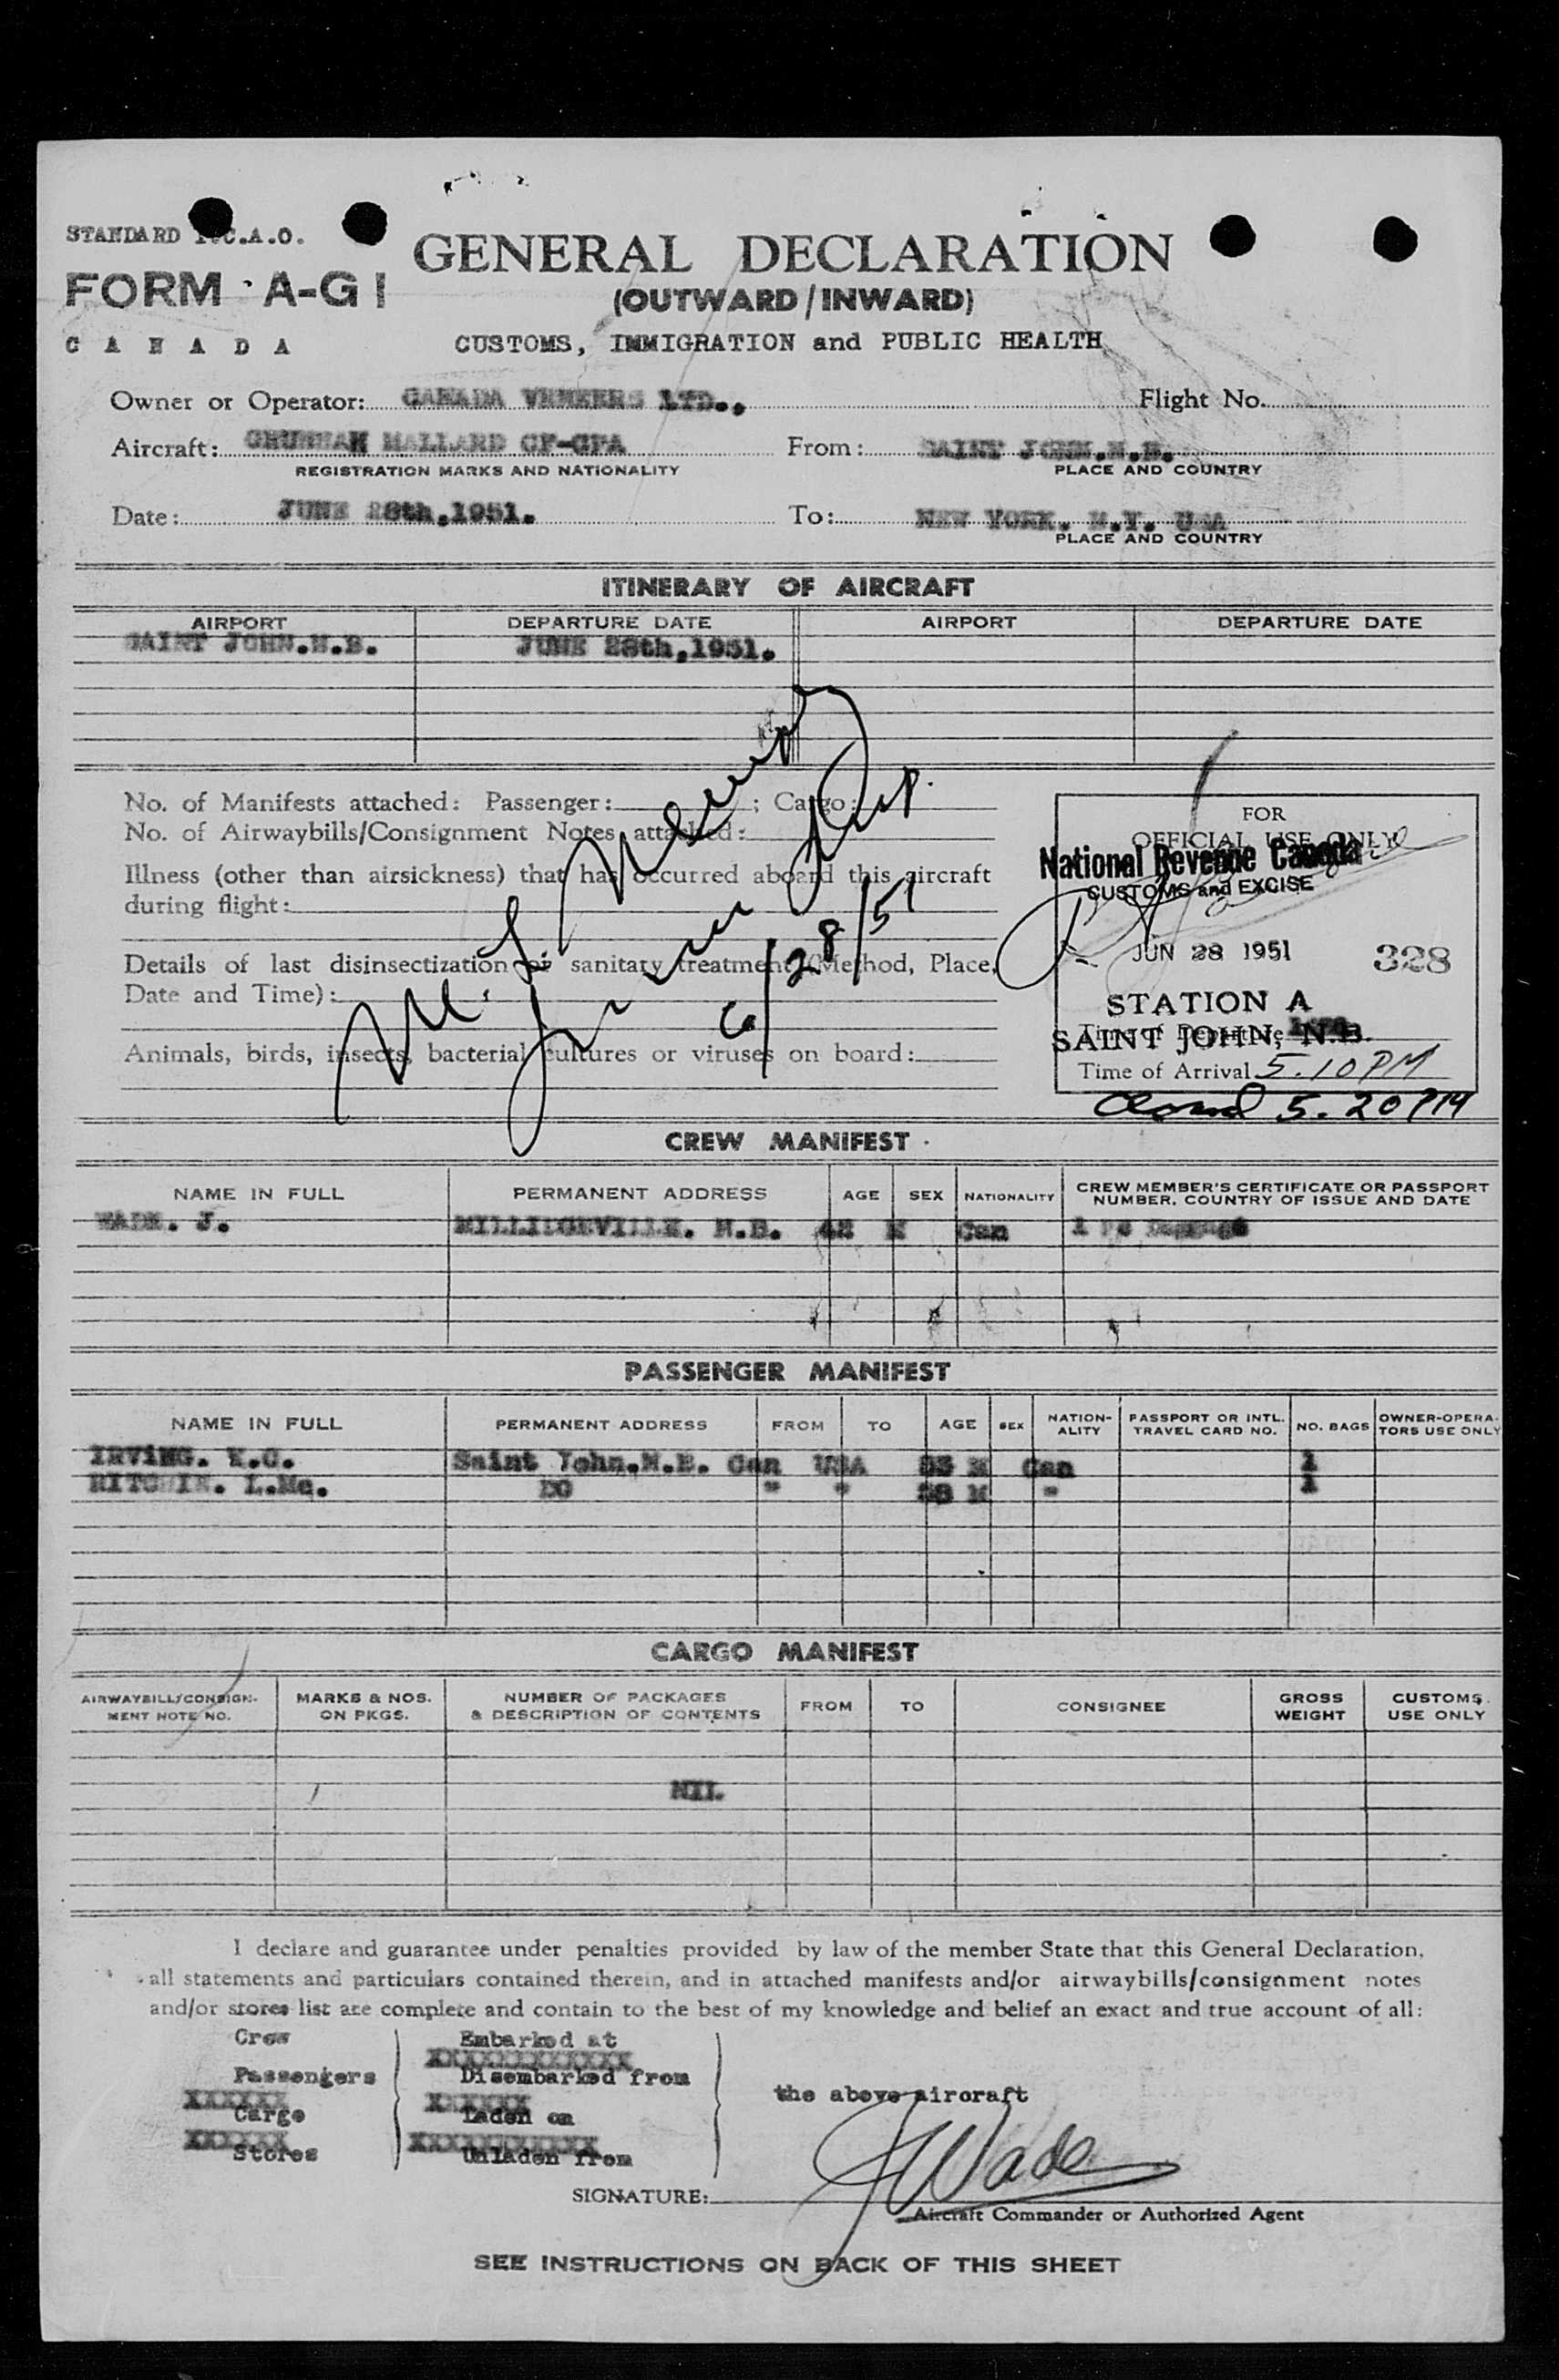 STANDARD I.C.A.O.
FORM A-G1
CANADA
GENERAL DECLARATION
(OUTWARD/INWARD)
CUSTOMS, IMMIGRATION and PUBLIC HEALTH
Owner or Operator: CANADA VENEERS LTD., Flight No.
Aircraft: GRUMMAN MALLARD CF-GPA From: SAINT JOHN.N.B.
REGISTRATION MARKS AND NATIONALITY PLACE AND COUNTRY
Date: JUNE 28th,1951. To: NEW YORK. N.Y. USA
PLACE AND COUNTRY
ITINERARY OF AIRCRAFT
AIRPORT DEPARTURE DATE AIRPORT DEPARTURE DATE
SAINT JOHN.N.B. JUNE 28th,1951.
No. of Manifests attached: Passenger: ; Cargo:
No. of Airwaybills/Consignment Notes attached:
Illness (other than airsickness) that has occurred aboard this aircraft
during flight:
Details of last disinsectization or sanitary treatment (Method, Place,
Date and Time):
Animals, birds, insects, bacterial cultures or viruses on board:
6/28/51
FOR
OFFICIAL USE ONLY
National Revenue Canada
CUSTOMS and EXCISE
JUN 28 1951 328
STATION A
SAINT JOHN, N.B.
Time of Departure
Time of Arrival 5.10 PM
5.20 PM
CREW MANIFEST
NAME IN FULL PERMANENT ADDRESS AGE SEX NATIONALITY CREW MEMBER'S CERTIFICATE OR PASSPORT
NUMBER, COUNTRY OF ISSUE AND DATE
WADE. J. MILLIDGEVILLE. N.B. 42 M Can 1 Pc Baggage
PASSENGER MANIFEST
NAME IN FULL PERMANENT ADDRESS FROM TO AGE SEX NATION-
ALITY PASSPORT OR INTL.
TRAVEL CARD NO. NO. BAGS OWNER-OPERA-
TORS USE ONLY
IRVING. K.C. Saint John.N.B. Can USA M Can 1
RITCHIE. L.Mc. DO " " M " 1
CARGO MANIFEST
AIRWAYBILL/CONSIGN-
MENT NOTE NO. MARKS & NOS.
ON PKGS. NUMBER OF PACKAGES
& DESCRIPTION OF CONTENTS FROM TO CONSIGNEE GROSS
WEIGHT CUSTOMS
USE ONLY
NIL
I declare and guarantee under penalties provided by law of the member State that this General Declaration,
all statements and particulars contained therein, and in attached manifests and/or airwaybills/consignment notes
and/or stores list are complete and contain to the best of my knowledge and belief an exact and true account of all:
Crew Embarked at
XXXXXXXXXXXXX
Passengers Disembarked from
the above aircraft
XXXXXX XXXXXX
Cargo Laden on
XXXXXX XXXXXXXXXXX
Stores Unladen from
J Wade
SIGNATURE:
Aircraft Commander or Authorized Agent
SEE INSTRUCTIONS ON BACK OF THIS SHEET